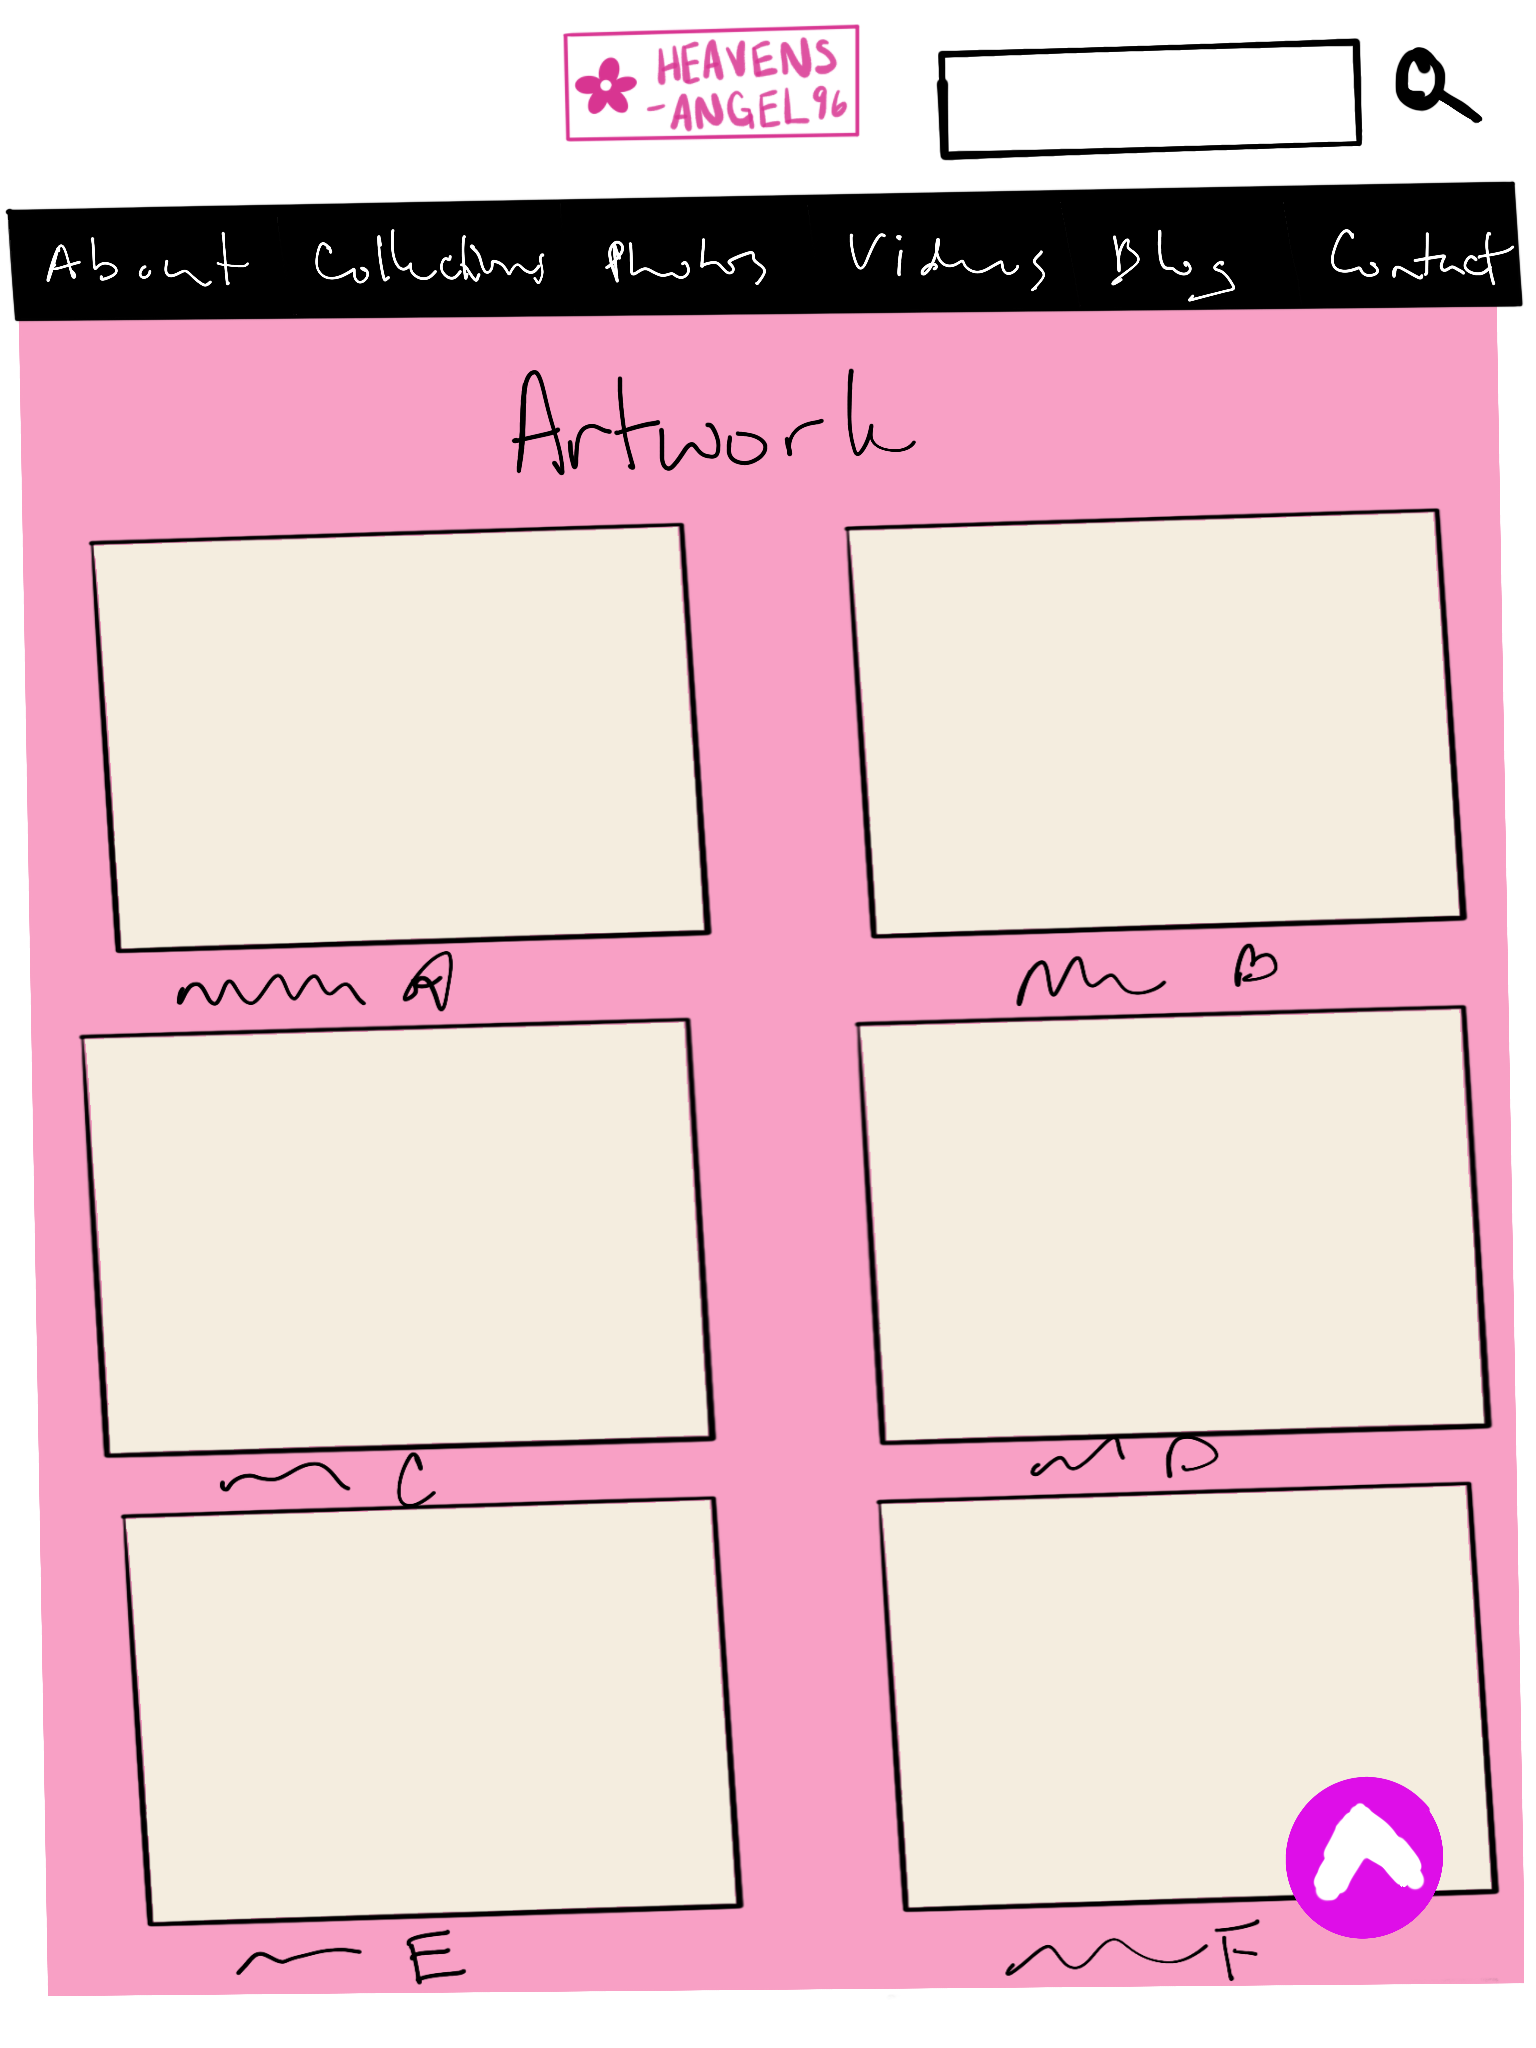 HEAVENS
-ANGEL96
About Collections Photos Videos Blog Contact
Artwork
A
B
C
D
E
F